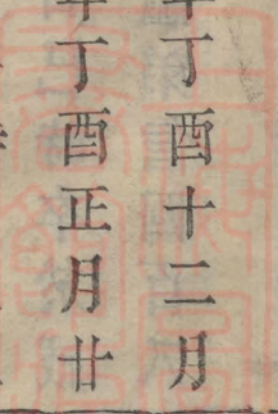 年丁酉十二月
年丁酉正月廿